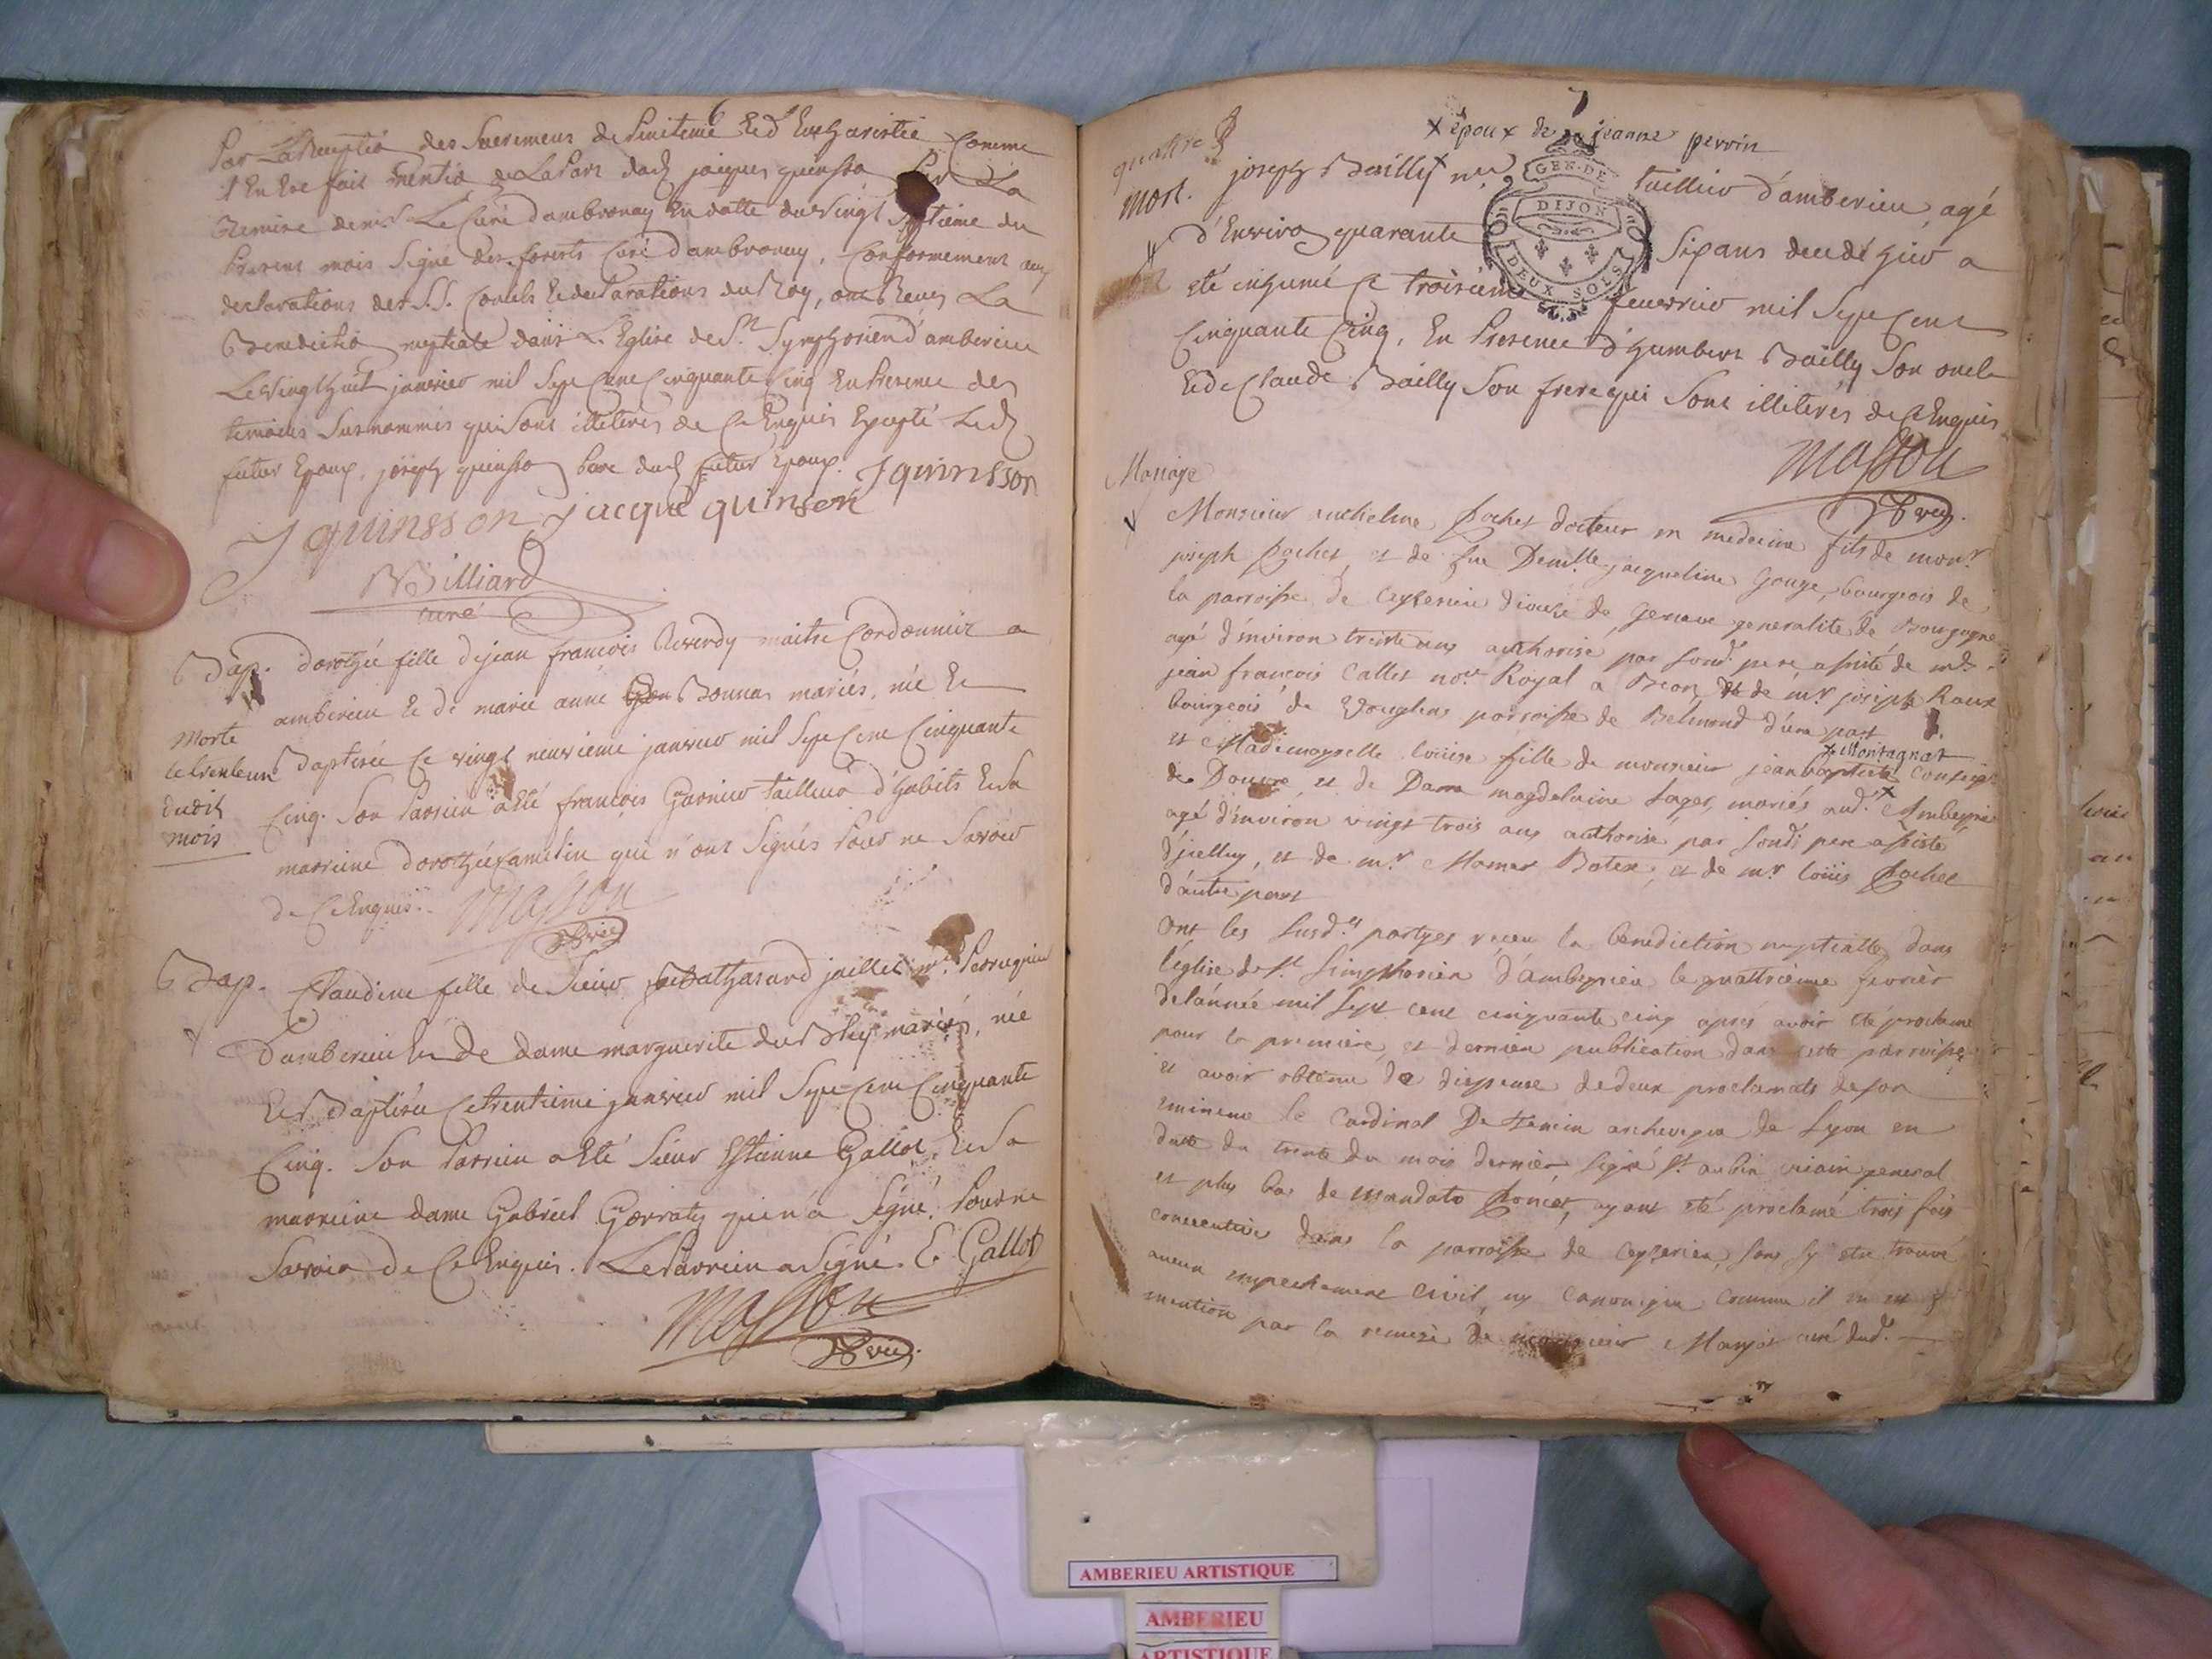 6
Par La Reception des Sacremens de Penitence Et d'Eucharistie Comme
il En Est fait mentio de La Part dud jacques quinsso Par La
Remise de mr. Le Curé d'ambronay En datte du vingt Septieme du
Present mois Signé des forests Curé d'ambronay, Conformement aux
declarations des S.S. Conciles Et declarations du Roy, ont Recus La
Benedictio nuptiale dans L'Eglise de St. Symphorien d'amberieu
Le vingt huit janvier mil Sept Cent Cinquante Cinq En Presence des
temoins Surnommés qui Sont illiterés de Ce Enquis Excepté Led
futur Epoux, joseph quinsso Pere dud futur Epoux. J quinsson
J quinsson jacque quinson
Billiard
curé
Bap. dorothée fille de jean francois Reverdy maitre Cordonnier a
amberieu Et de marie anne Bonnas mariés, née Et
Morte
le trente un
dudit
mois
Baptisée Ce vingt neuvieme janvier mil Sept Cent Cinquante
Cinq. Son Parrein a Eté françois Garnier tailleur d'habits Et Sa
marreine dorothée Camelin qui n'ont Signés Pour ne Savoir
de Ce Enquis. Masson
Vic.
Bap. Claudine fille de Sieur Balthasard jaillet mre. Perruquier
D'amberieu Et De dame marguerite mariés, née
Et Baptisée Ce trentieme janvier mil Sept Cent Cinquante
Cinq. Son Parrein a Eté Sieur Estienne Gallot Et Sa
marreine dame Gabriel Gorraty qui n'a Signé Pour ne
Savoir de Ce Enquis. Le Parrein a Signé. E Gallot
Masson
Vic.
7
x époux de jeanne perrin
quattre
mort.
joseph Bailly x taillier d'amberieu agé
GEN. DE
DIJON
DEUX SOLS
d'Enviro quarante Six ans decedé hier a
eté inhumé Ce troisieme fevrier mil Sept Cent
Cinquante Cinq, En Presence d'humbert Bailly Son oncle
Et de Claude Bailly Son frere qui Sont illiterés de Ce Enquis
Masson
Vic.
Mariage
Monsieur anthelme Pochet docteur en medecine fils de monr.
joseph Pochet et de fue Demlle jacqueline Gouge, bourgeois de
la parroisse de Ceyserieu diocese de Geneve generalité de Bourgogne
agé d'environ trente ans authorisé par sond. pere assisté de
jean francois Callet nore Royal a Beon et de mr joseph Roux
bourgeois de Vouglens parroisse de Belmond d'une part
x Montagnat
et Mademoyselle louise fille de monsieur jean baptiste
de Douvre et de Dame magdelaine Sager, mariés aud. x Ambeyrieu
agé d'environ vingt trois ans authorisé par sond. pere assisté
d'icelluy, et de mr Mamer Botex, et de mr loüis Pochet
d'autre part
Ont les susd.es partyes receu la benediction nuptialle dans
l'église de St. Simphorien d'ambeyrieu le quattrieme fevrier
de l'année mil sept cent cinquante cinq aprés avoir été proclamé
pour la premiere et derniere publication dans cette parroisse
et avoir obtenu de dispense de deux proclamats de son
eminence le Cardinal De Tencin archeveque de Lyon en
datte du trente du mois dernier signé St aubin vicaire general
et plus bas de mandato Poncet, ayant été proclamé trois fois
consecutives dans la parroisse de Ceyserieu, sans sy etre trouvé
aucun empechement civil ny Canonique comme il en est
mention par la remise de monsieur Marjot curé dud.
AMBERIEU ARTISTIQUE
AMBERIEU
ARTISTIQUE